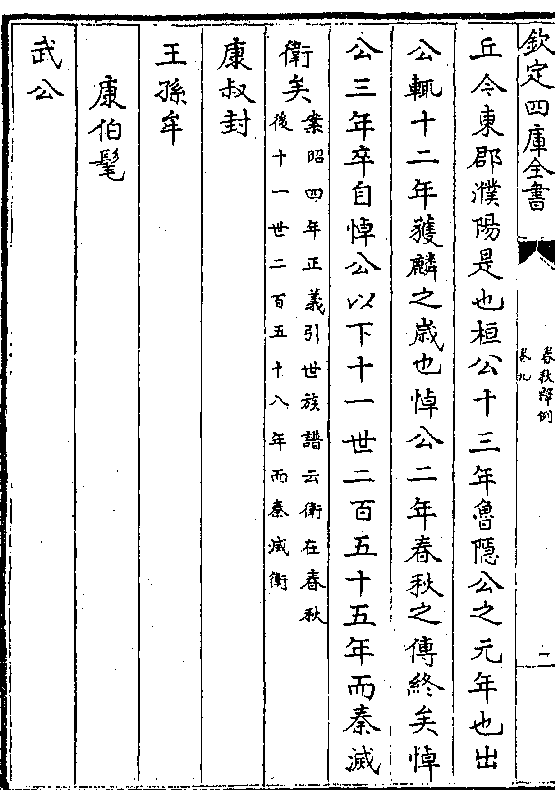 欽定四庫全書
春秋釋例
卷九
二
丘今東郡濮陽是也桓公十三年魯隱公之元年也出
公輒十二年獲麟之歲也悼公二年春秋之傳終矣悼
公三年卒自悼公以下十一世二百五十五年而秦滅
衛矣案昭四年正義引世族譜云衛在春秋
後十一世二百五十八年而秦滅衛
康叔封
王孫牟
康伯髦
武公